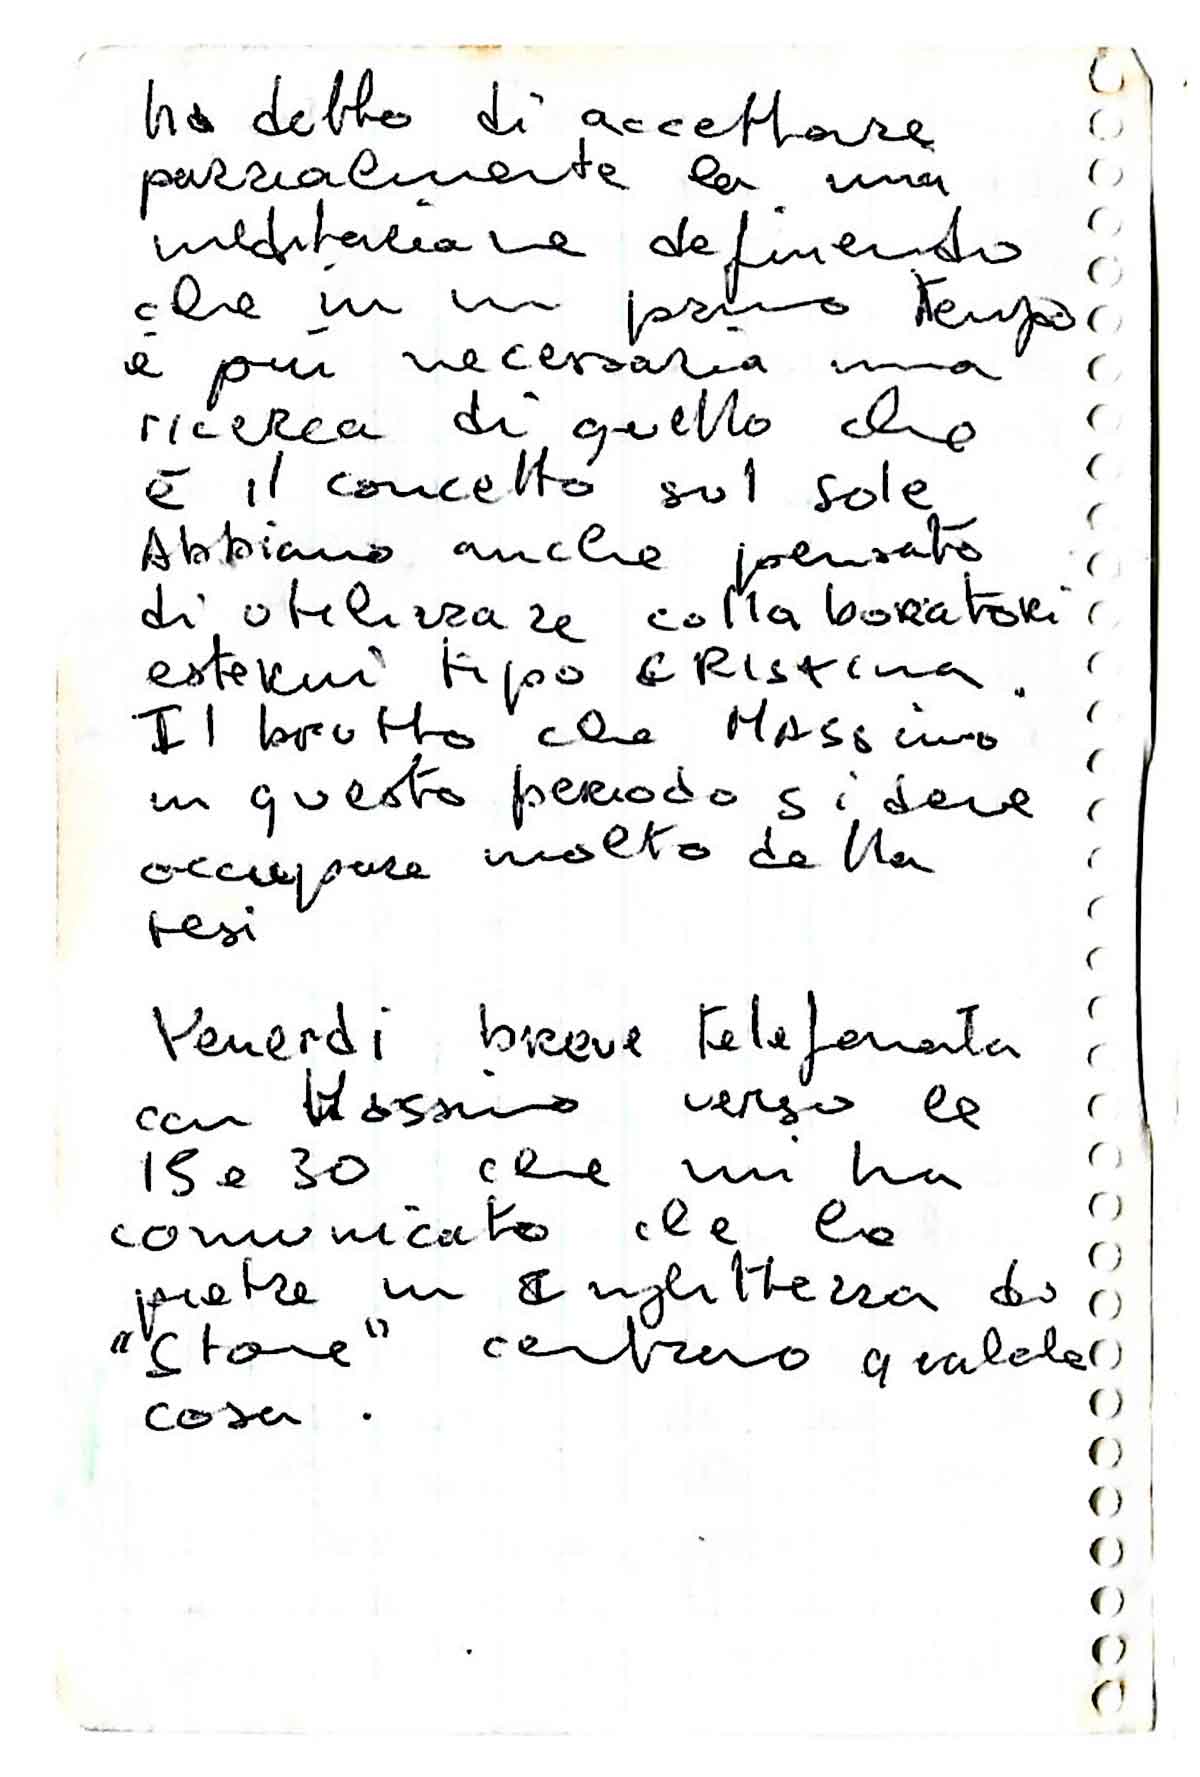 ho detto di accettare
parzialmente la mia
meditazione definendo
che in un primo tempo
è più necessaria una
ricerca di quello che
è il concetto sul sole
Abbiamo anche pensato
di utilizzare collaboratori
esterni tipo CRISTina.
Il brutto che MASSimo
in questo periodo si deve
occupare molto della
tesi
Venerdi breve telefonata
con Massimo verso le
15 e 30 che mi ha
comunicato che le
pietre in Inghilterra di
"Stone" centrano qualche
cosa.